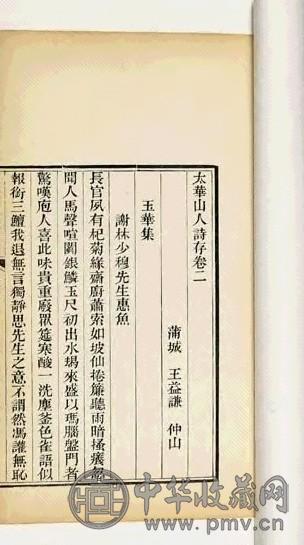 太華山人詩存卷二
蒲城 王益謙 仲山
玉華集
謝林少穆先生惠魚
長官夙有杞菊緣齋廚蕭索如坡仙捲簾聽雨暗搔癢
聞人馬聲喧闐銀鱗玉尺初出水場來盛以瑪腦盤門者
驚嘆庖人喜此味貴重廢罛筵寒酸一洗塵釜色雀語似
報銜三鱣我退無言獨靜思先生之意不謂然馮讙無恥
中华收藏网
www.pmv.cn